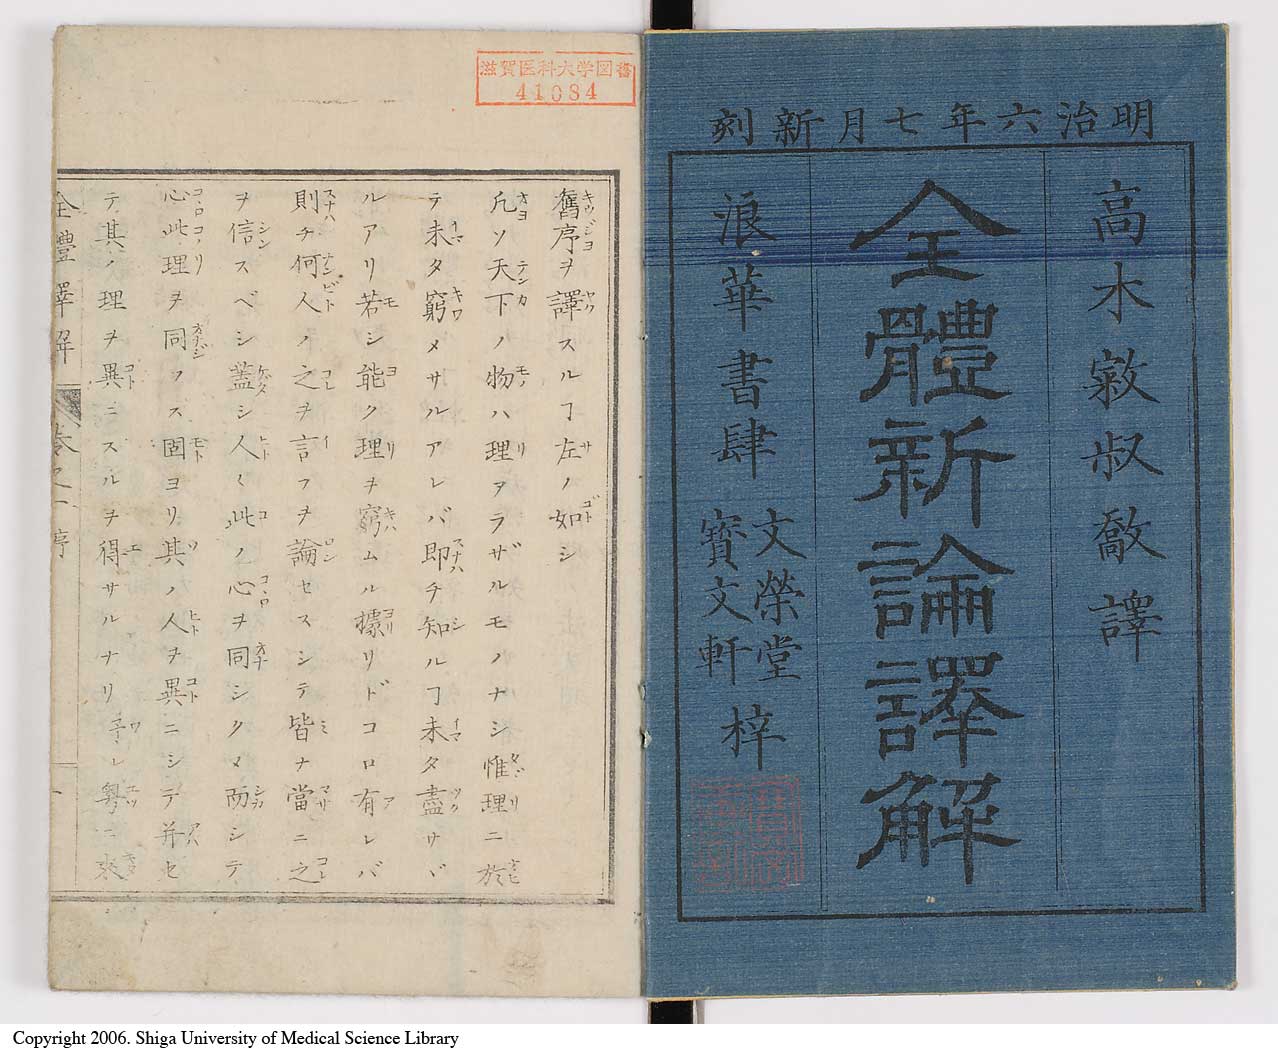 明治六年七月新刻
高木敹叔敽譯
全體新論譯解
浪華書肆
文榮堂
寶文軒
梓
滋賀医科大学図書
41084
舊序ヲ譯スルヿ左ノ如シ
凡ソ天下ノ物ハ理ヲラザルモノナシ惟理ニ於
テ未タ窮メサルアレバ即チ知ルヿ未タ盡サヾ
ルアリ若シ能ク理ヲ窮ムル據リドコロ有レバ
則チ何人ノ之ヲ言フヲ論セスシテ皆ナ當ニ之
ヲ信スベシ蓋シ人々此ノ心ヲ同シクメ而シテ
心此理ヲ同フス固ヨリ其ノ人ヲ異ニシテ并セ
テ其ノ理ヲ異ニスルヲ得サルナリ予レ粤ニ來
全體譯解 卷之一 序 一
Copyright 2006. Shiga University of Medical Science Library